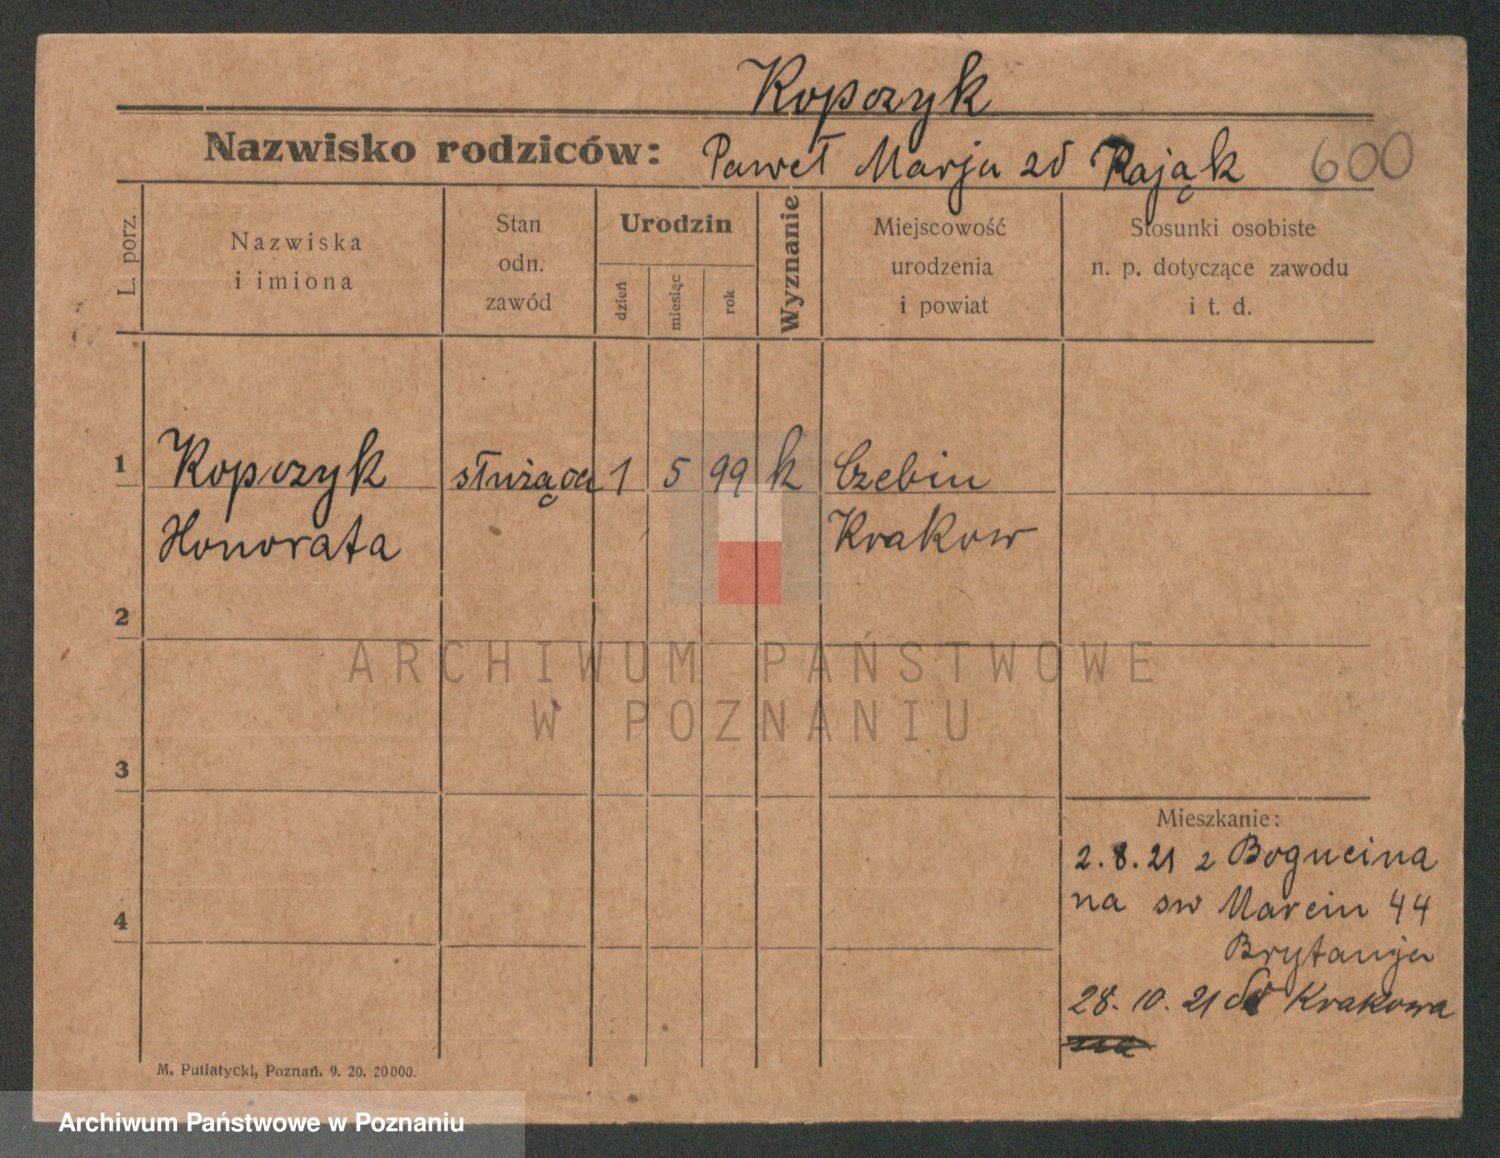 Kopczyk
Nazwisko rodziców: Paweł Marja zd Rająk 600
L. porz.
Nazwiska i imiona
Stan odn. zawód
Urodzin
dzień
miesiąc
rok
Wyznanie
Miejscowość urodzenia i powiat
Stosunki osobiste n. p. dotyczące zawodu i t. d.
1 Kopczyk służąca 1 5 99 k Czebin
Honorata Krakow
2
ARCHIWUM PAŃSTWOWE
W POZNANIU
3
Mieszkanie:
2.8.21 z Bogucina
na sw Marcin 44
4
Brytanja
28.10.21 do Krakowa
M. Putiatycki, Poznań. 9. 20. 20000.
Archiwum Państwowe w Poznaniu